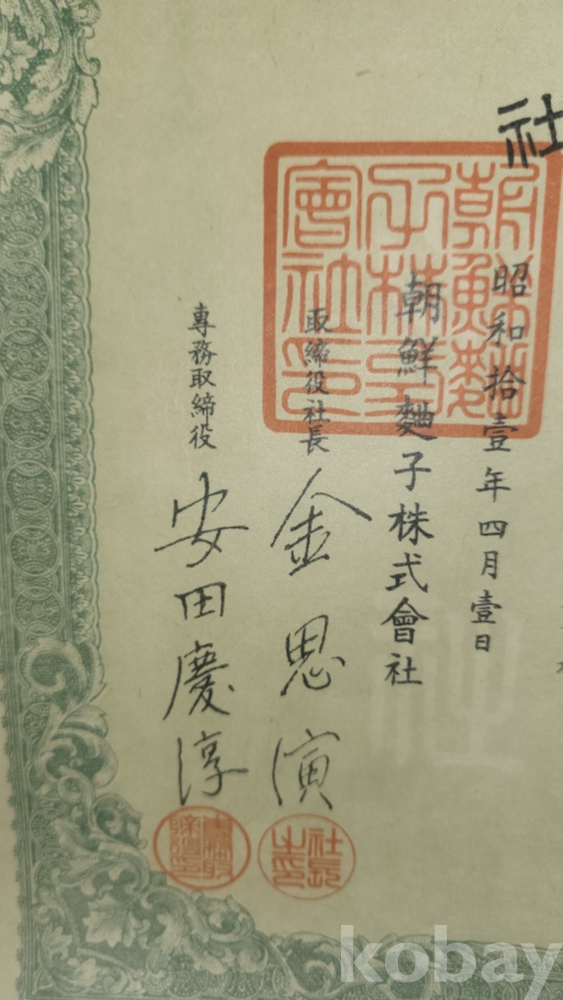 社
昭和拾壹年四月壹日
朝鮮麯子株式會社
取締役社長 金思演
專務取締役 安田慶淳
朝鮮麯
子株式
會社印
社長
之印
專務取
締役印
kobay